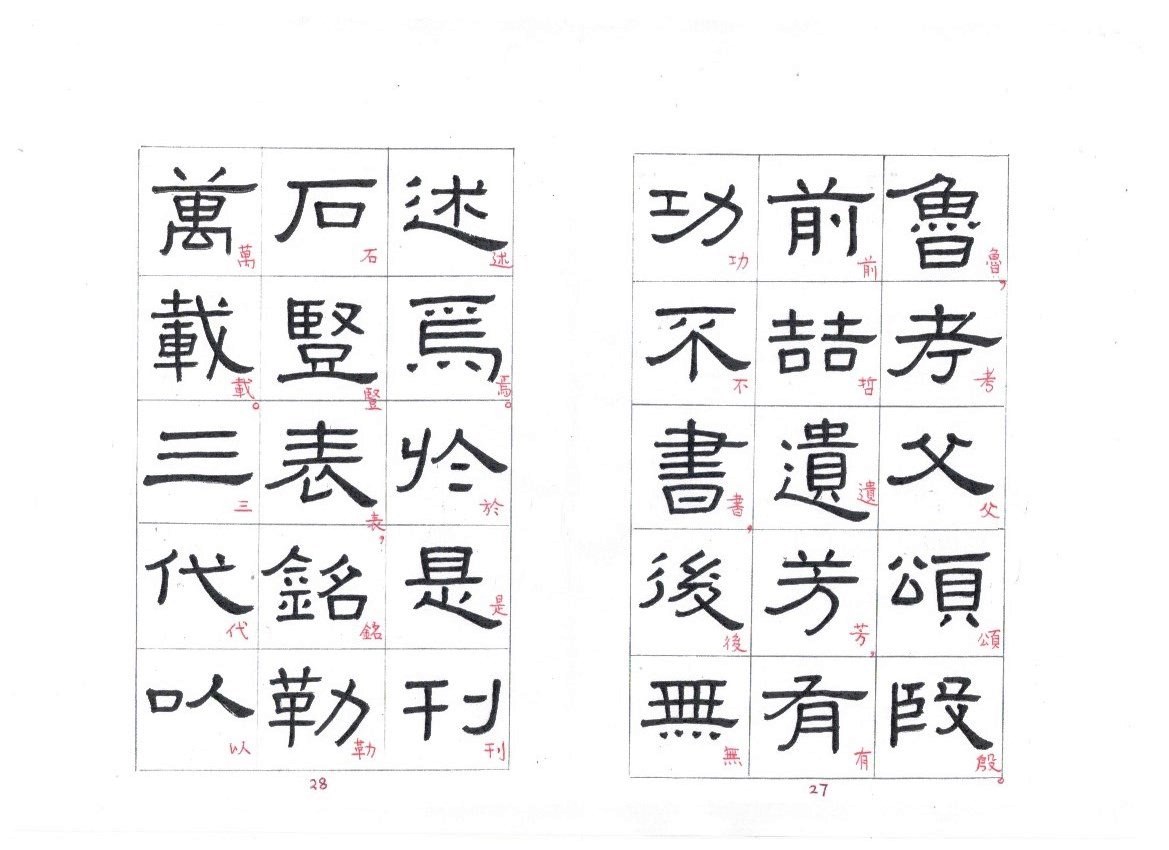 魯考父頌殷
魯，考父頌殷。
前喆遺芳有
前哲遺芳，有
功不書後無
功不書，後無
27
述焉於是刊
述焉。於是刊
石豎表銘勒
石豎表，銘勒
萬載三代以
萬載。三代以
28